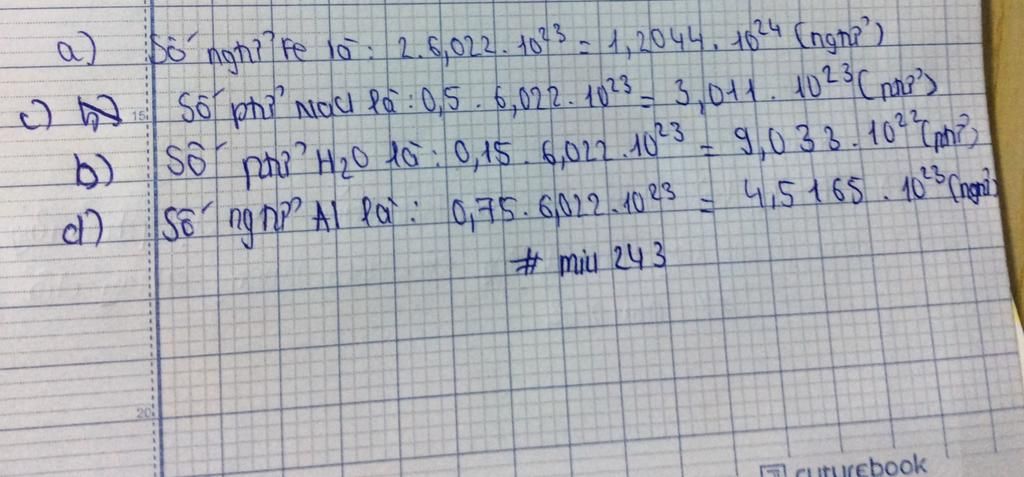 a) Số ngtử Fe là: 2.6,022.10²³ = 1,2044.10²⁴ (ngtử)
c) b) Số phtử NaCl là: 0,5.6,022.10²³ = 3,011.10²³ (phtử)
15
b) Số phtử H2O là: 0,15.6,022.10²³ = 9,033.10²² (phtử)
d) Số ngtử Al là: 0,75.6,022.10²³ = 4,5165.10²³ (ngtử)
# miu 243
20
futurebook